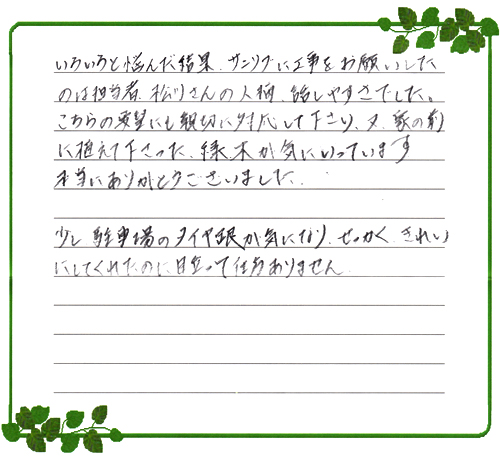 いろいろと悩んだ結果、サンリブに工事をお願いした
のは担当者、松川さんの人柄、話しやすさでした。
こちらの要望にも親切に対応して下さり、又、家の前
に植えて下さった、緑、木が気にいっています
本当にありがとうございました.
少し駐車場のタイヤ跟が気になり、せっかく、きれい
にしてくれたのに目立って仕方ありません.